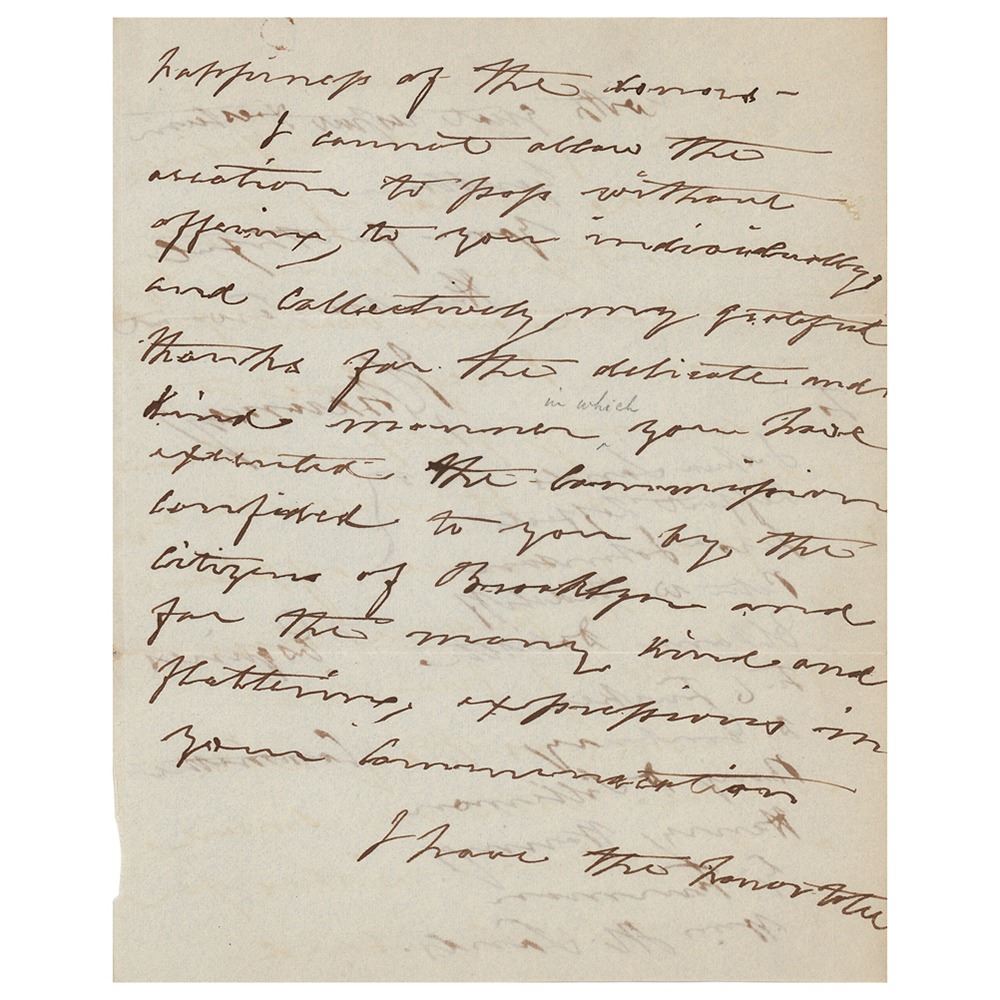 happiness of the donors -
I cannot allow the
occation to pass without
offering to you individually
and collectively my grateful
thanks for the delicate and
in which
kind manner you have
executed the Commission
confided to you by the
Citizens of Brooklyn and
for the many kind and
flattering expressions in
your Communication
I have the honor to be